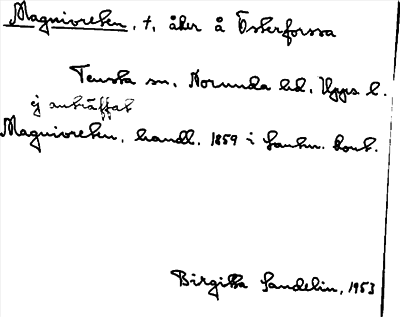 Magnivreten, †, åker å Österforssa
Tensta sn, Norunda hd, Upps. l.
ej anträffat
Magnivreten, handl. 1859 i Lantm. kont.
Birgitta Sandelin, 1953